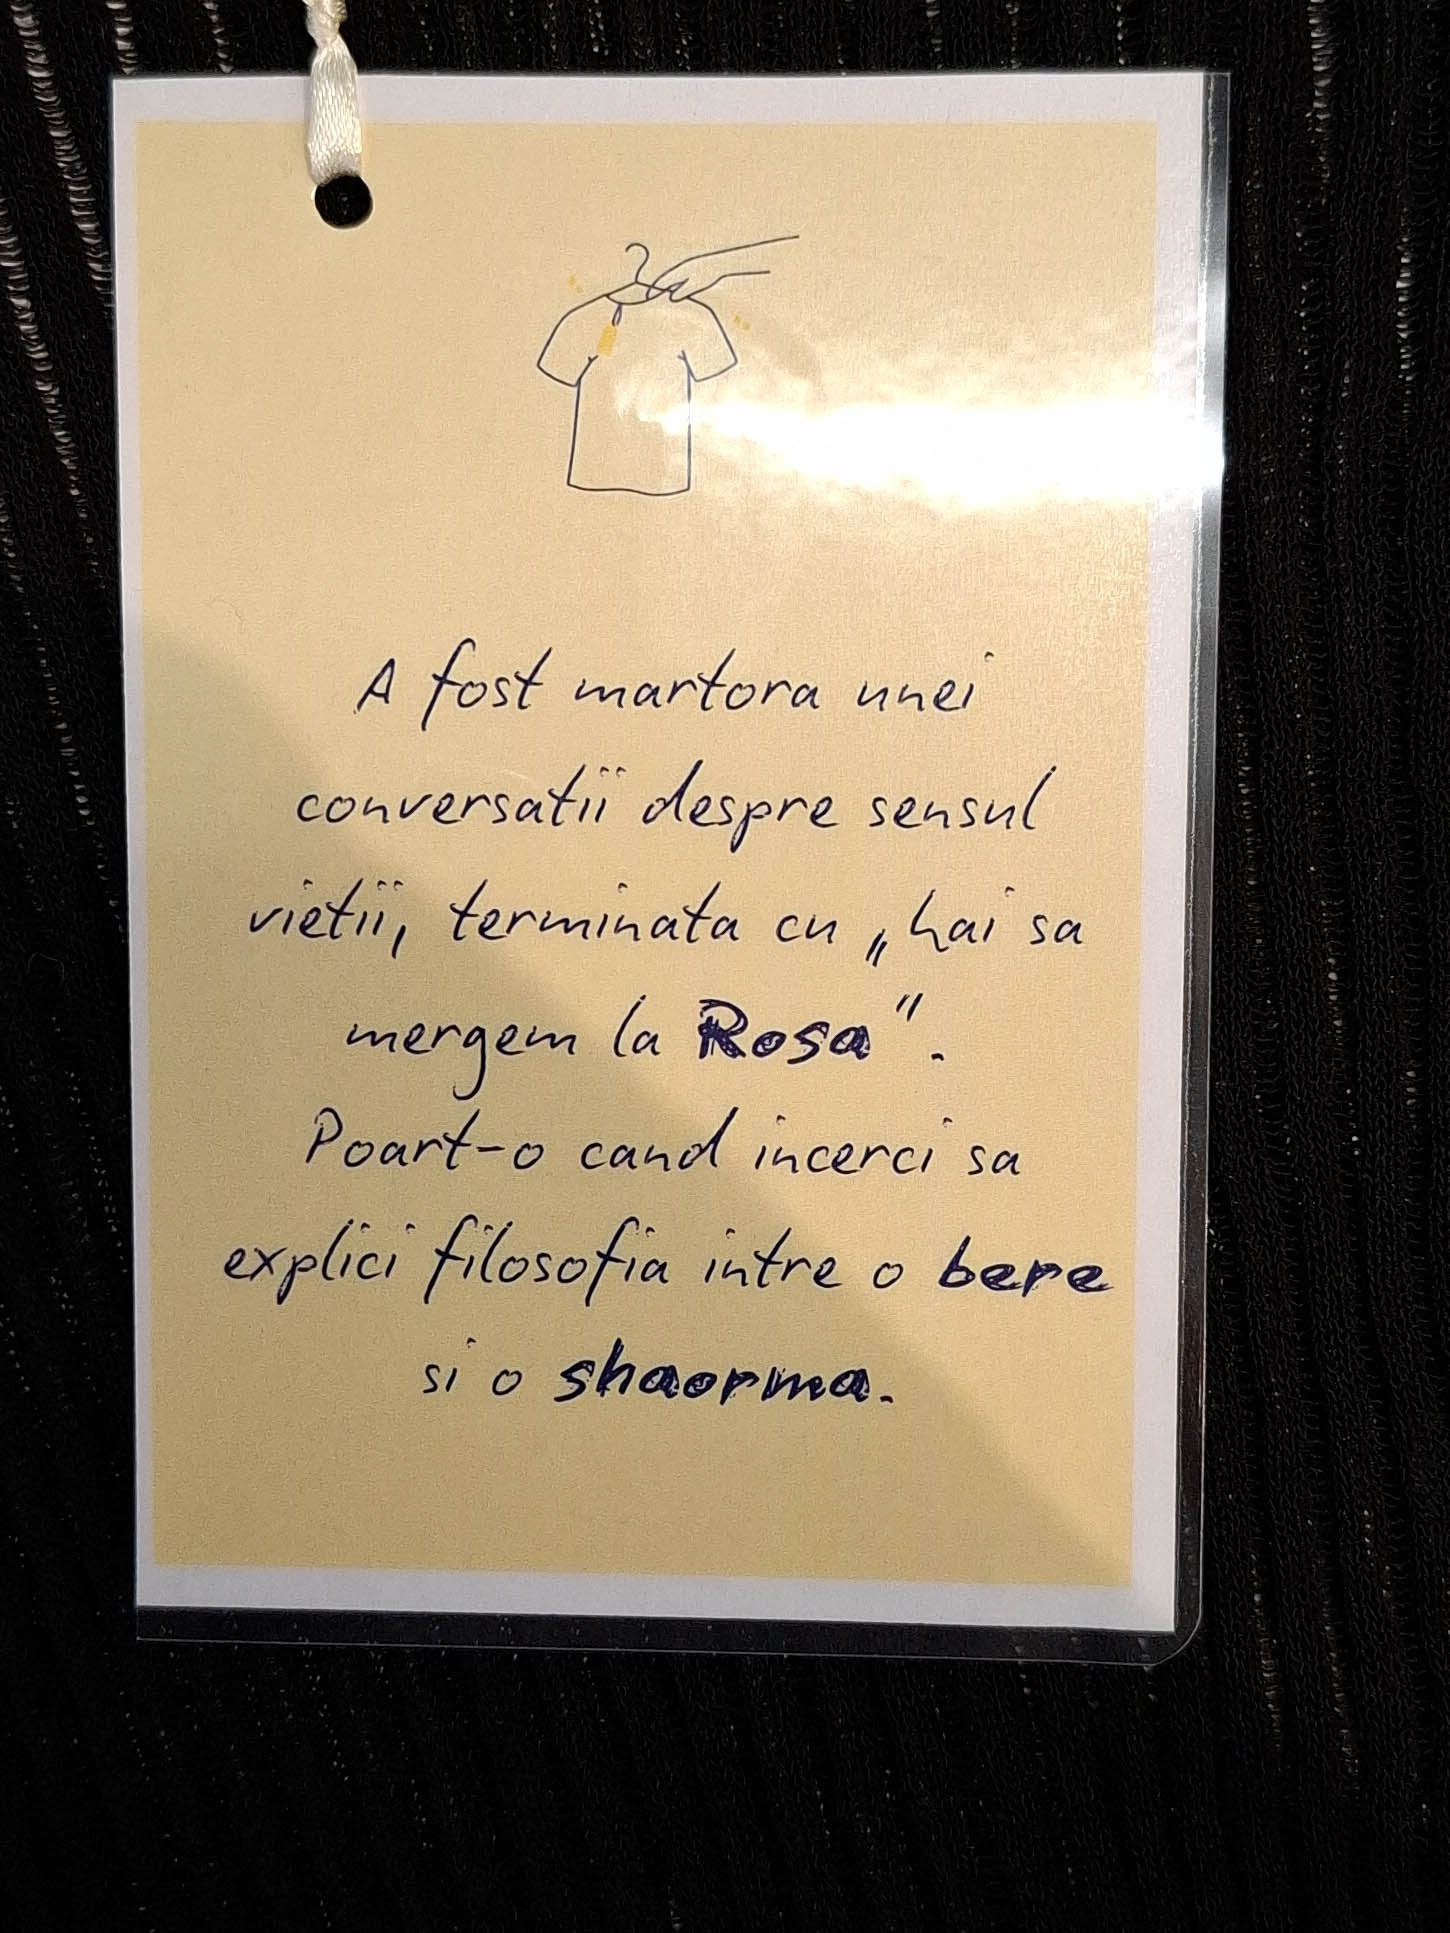 A fost martora unei
conversatii despre sensul
vietii, terminata cu „hai sa
mergem la Rosa”.
Poart-o cand incerci sa
explici filosofia intre o bere
si o shaorma.